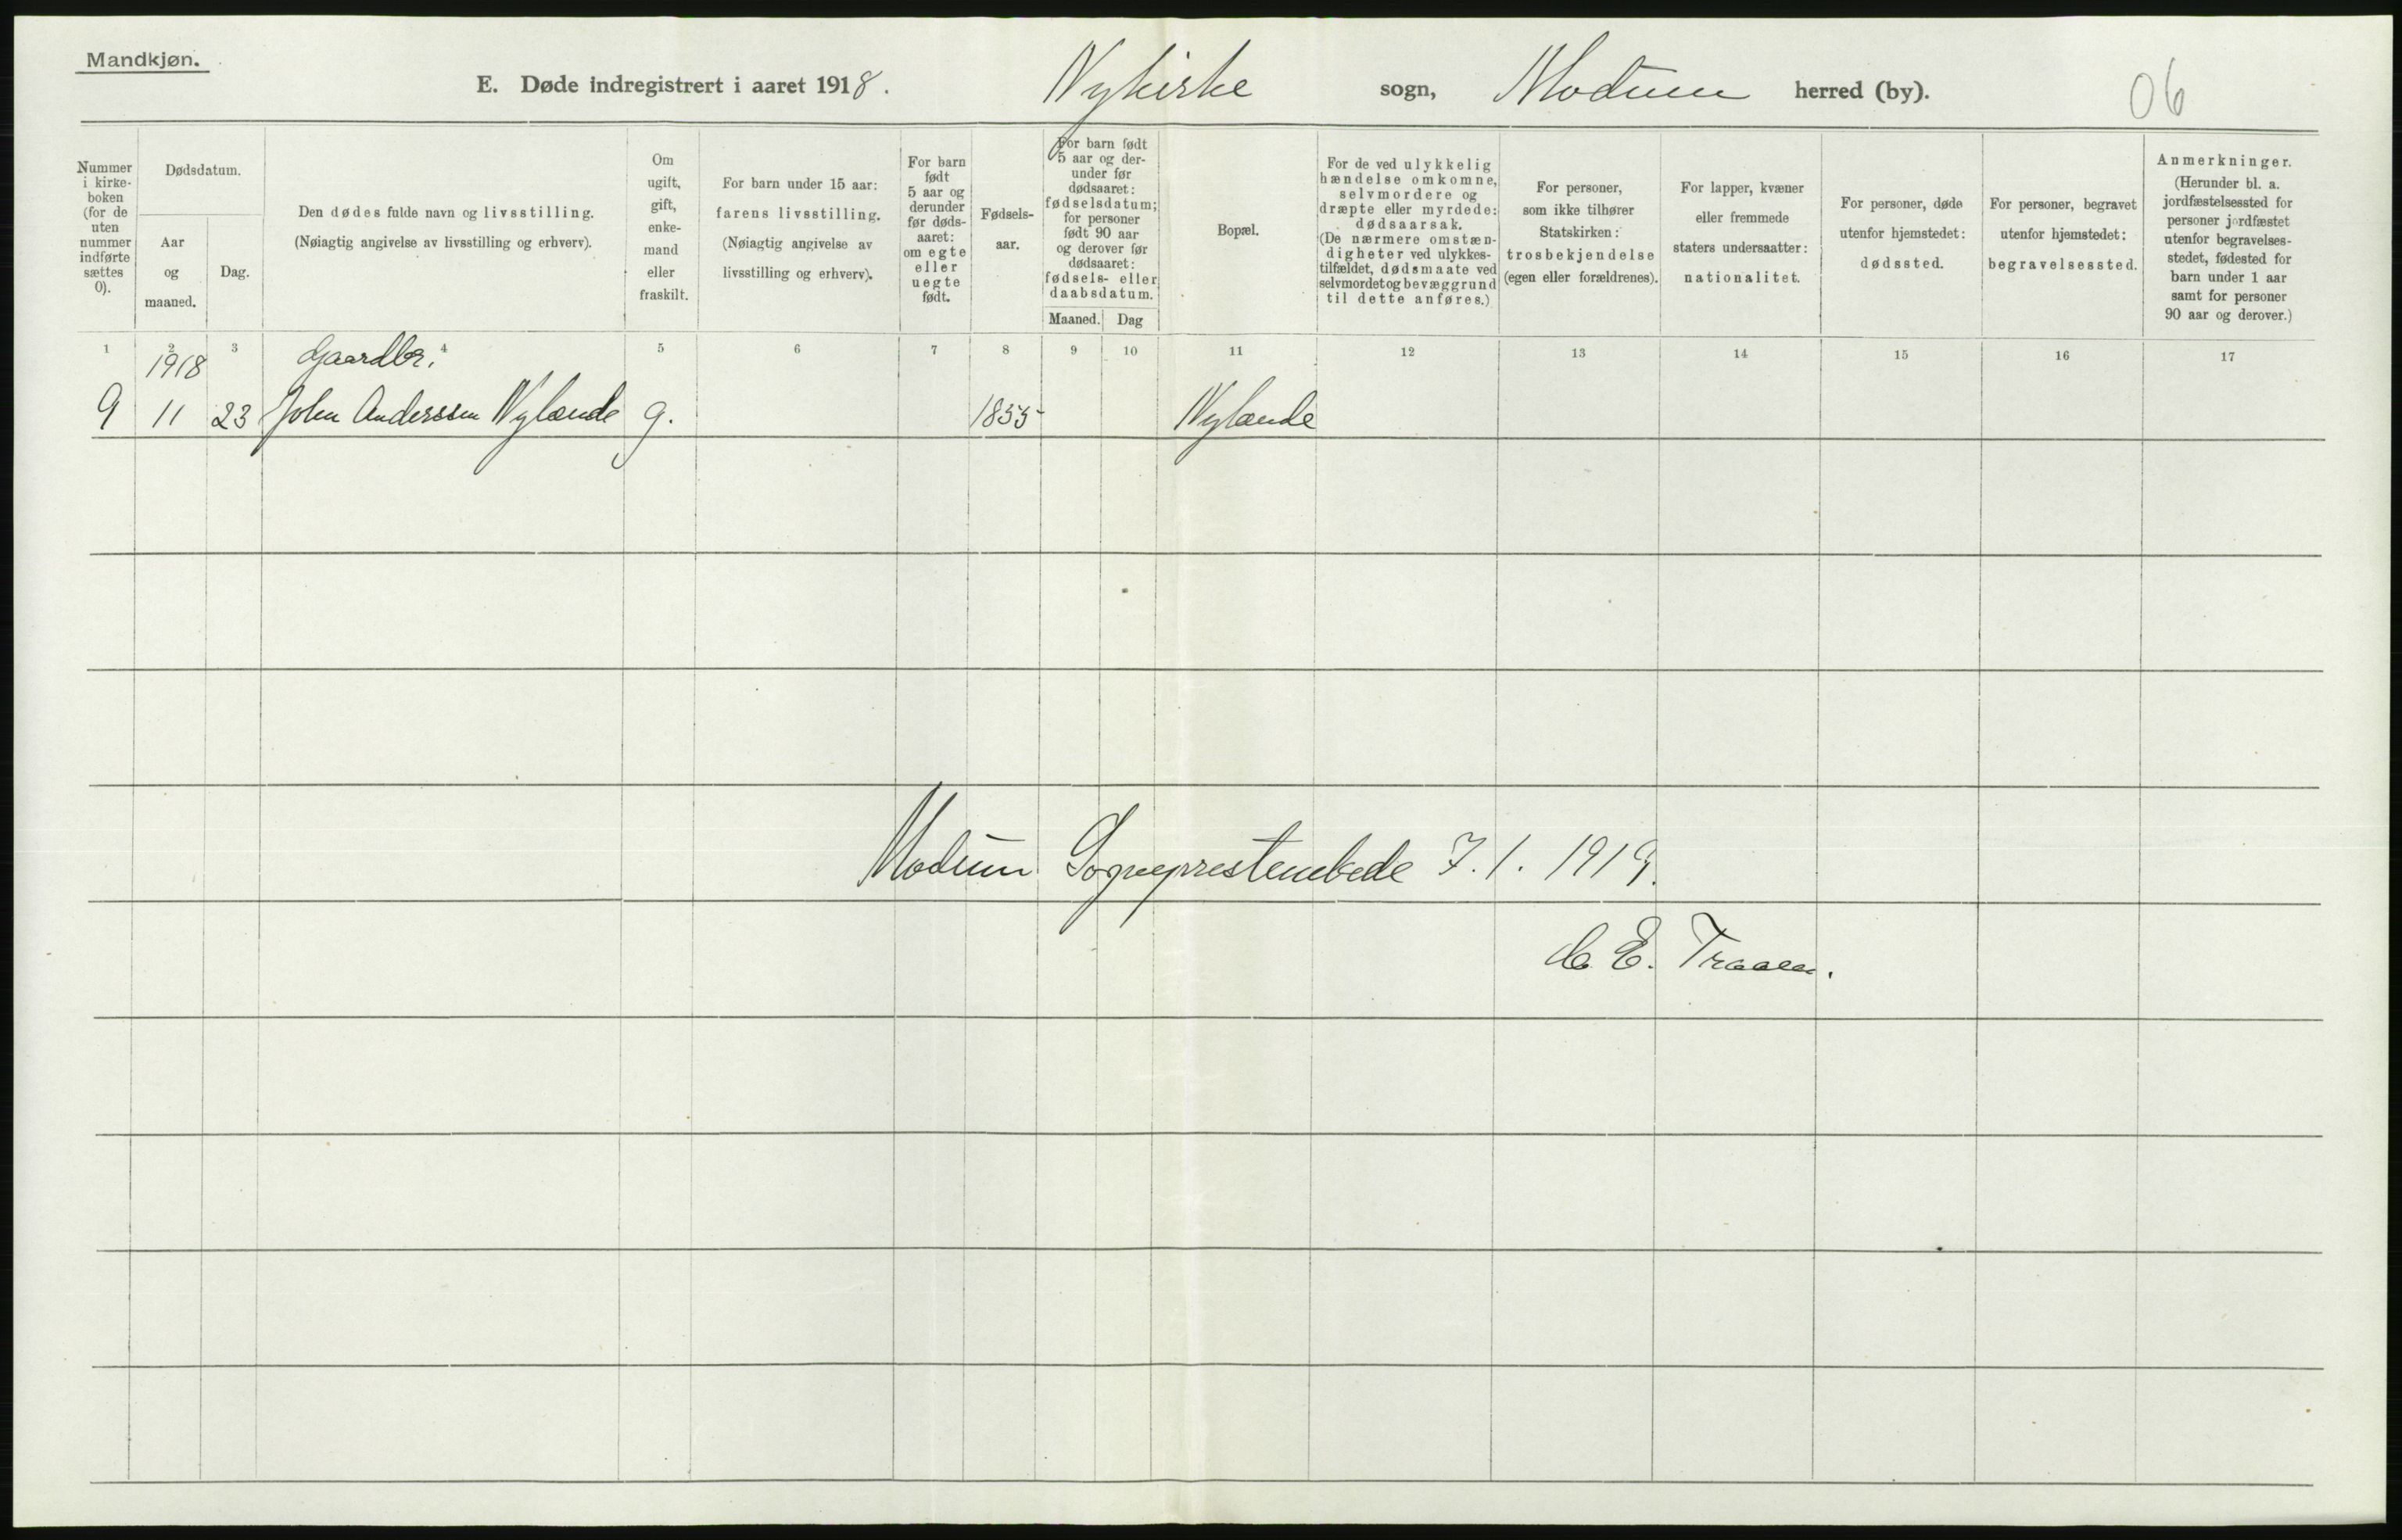 Mandkjøn.
E. Døde indregistrert i aaret 1918. Nykirke sogn, Modum herred (by). 06
Nummer
i kirke-
boken
(for de
uten
nummer
indførte
sættes
0).
Dødsdatum.
Aar
og
maaned.
Dag.
Den dødes fulde navn og livsstilling.
(Nøiagtig angivelse av livsstilling og erhverv).
Om
ugift,
gift,
enke-
mand
eller
fraskilt.
For barn under 15 aar:
farens livsstilling.
(Nøiagtig angivelse av
livsstilling og erhverv).
For barn
født
5 aar og
derunder
før døds-
aaret:
om egte
eller
uegte
født.
Fødsels-
aar.
For barn født
5 aar og der-
under før
dødsaaret:
fødselsdatum;
for personer
født 90 aar
og derover før
dødsaaret:
fødsels- eller
daabsdatum.
Maaned. Dag
Bopæl.
For de ved ulykkelig
hændelse omkomne,
selvmordere og
dræpte eller myrdede:
dødsaarsak.
(De nærmere omstæn-
digheter ved ulykkes-
tilfældet, dødsmaate ved
selvmordet og bevæggrund
til dette anføres.)
For personer,
som ikke tilhører
Statskirken:
trosbekjendelse
(egen eller forældrenes).
For lapper, kvæner
eller fremmede
staters undersaatter:
nationalitet.
For personer, døde
utenfor hjemstedet:
dødssted.
For personer, begravet
utenfor hjemstedet:
begravelsessted.
Anmerkninger.
(Herunder bl. a.
jordfæstelsessted for
personer jordfæstet
utenfor begravelses-
stedet, fødested for
barn under 1 aar
samt for personer
90 aar og derover.)
1 2 3 4 5 6 7 8 9 10 11 12 13 14 15 16 17
1918 Gaardbr.
9 11 23 John Anderssen Nylænde g. 1855 Nylænde
Modum Sogneprestembede 7.1. 1919.
C. E. Traaen.